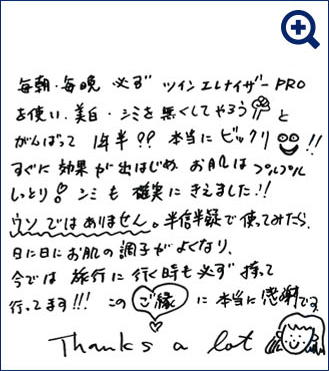 毎朝・毎晩 必ず ツインエレナイザーPRO
を使い、美白・シミを無くしてやろうと
がんばって 1年半?? 本当に ビックリ!!
すぐに 効果が出はじめ お肌は プルプル
しっとり! シミも 確実に きえました!!
ウソではありません。半信半疑で使ってみたら、
日に日にお肌の調子がよくなり、
今では 旅行に行く時も必ず持って
行ってます!!! この ご縁 に 本当に感謝です
Thanks a lot